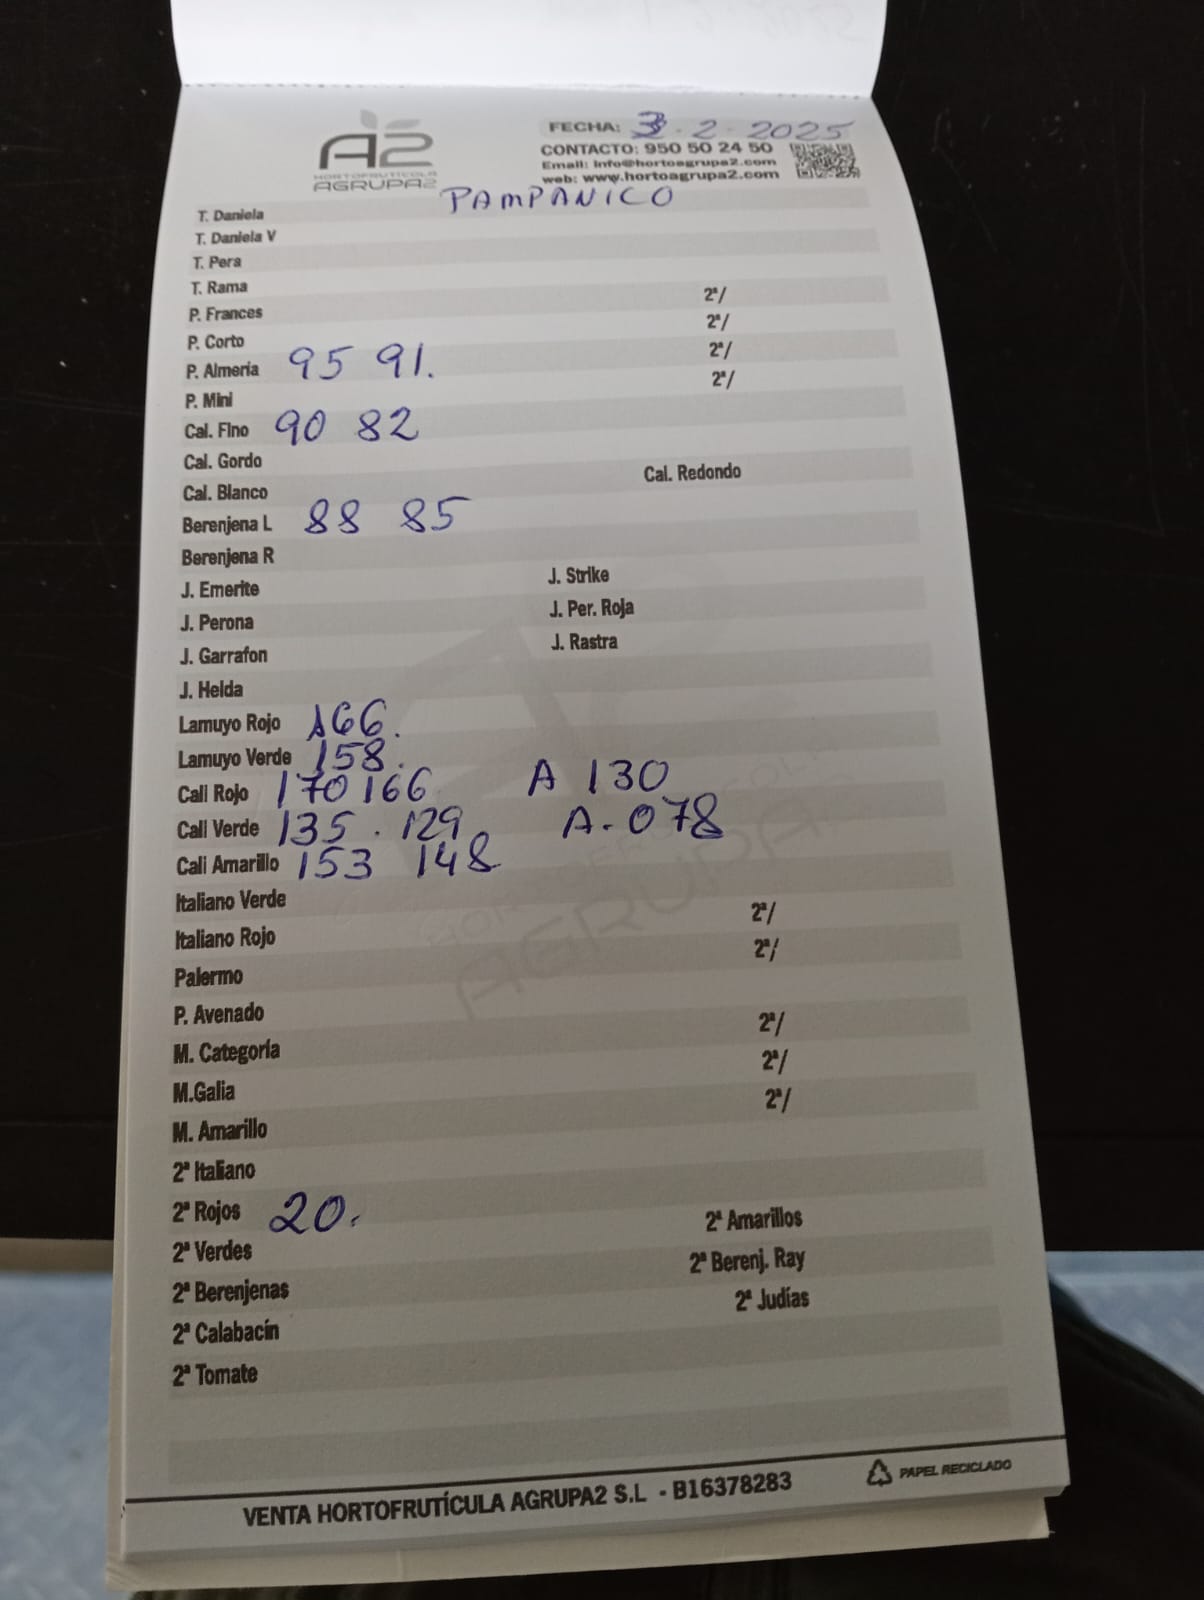 A2
HORTOFRUTICOLA
AGRUPA2
FECHA: 3-2-2025
CONTACTO: 950 50 24 50
Email: info@hortoagrupa2.com
web: www.hortoagrupa2.com
PAMPANICO
T. Daniela
T. Daniela V
T. Pera
T. Rama
P. Frances 2ª/
P. Corto 2ª/
P. Almería 95 91. 2ª/
P. Mini 2ª/
Cal. Fino 90 82
Cal. Gordo
Cal. Blanco Cal. Redondo
Berenjena L 88 85
Berenjena R
J. Emerite J. Strike
J. Perona J. Per. Roja
J. Garrafon J. Rastra
J. Helda
Lamuyo Rojo 166.
Lamuyo Verde 158.
Cali Rojo 170 166 A 130
Cali Verde 135. 129 A-078
Cali Amarillo 153 148
Italiano Verde 2ª/
Italiano Rojo 2ª/
Palermo
P. Avenado 2ª/
M. Categoría 2ª/
M.Galia 2ª/
M. Amarillo
2ª Italiano
2ª Rojos 20. 2ª Amarillos
2ª Verdes 2ª Berenj. Ray
2ª Berenjenas 2ª Judías
2ª Calabacín
2ª Tomate
HORTOFRUTICOLA
AGRUPA2
VENTA HORTOFRUTÍCULA AGRUPA2 S.L - B16378283
PAPEL RECICLADO